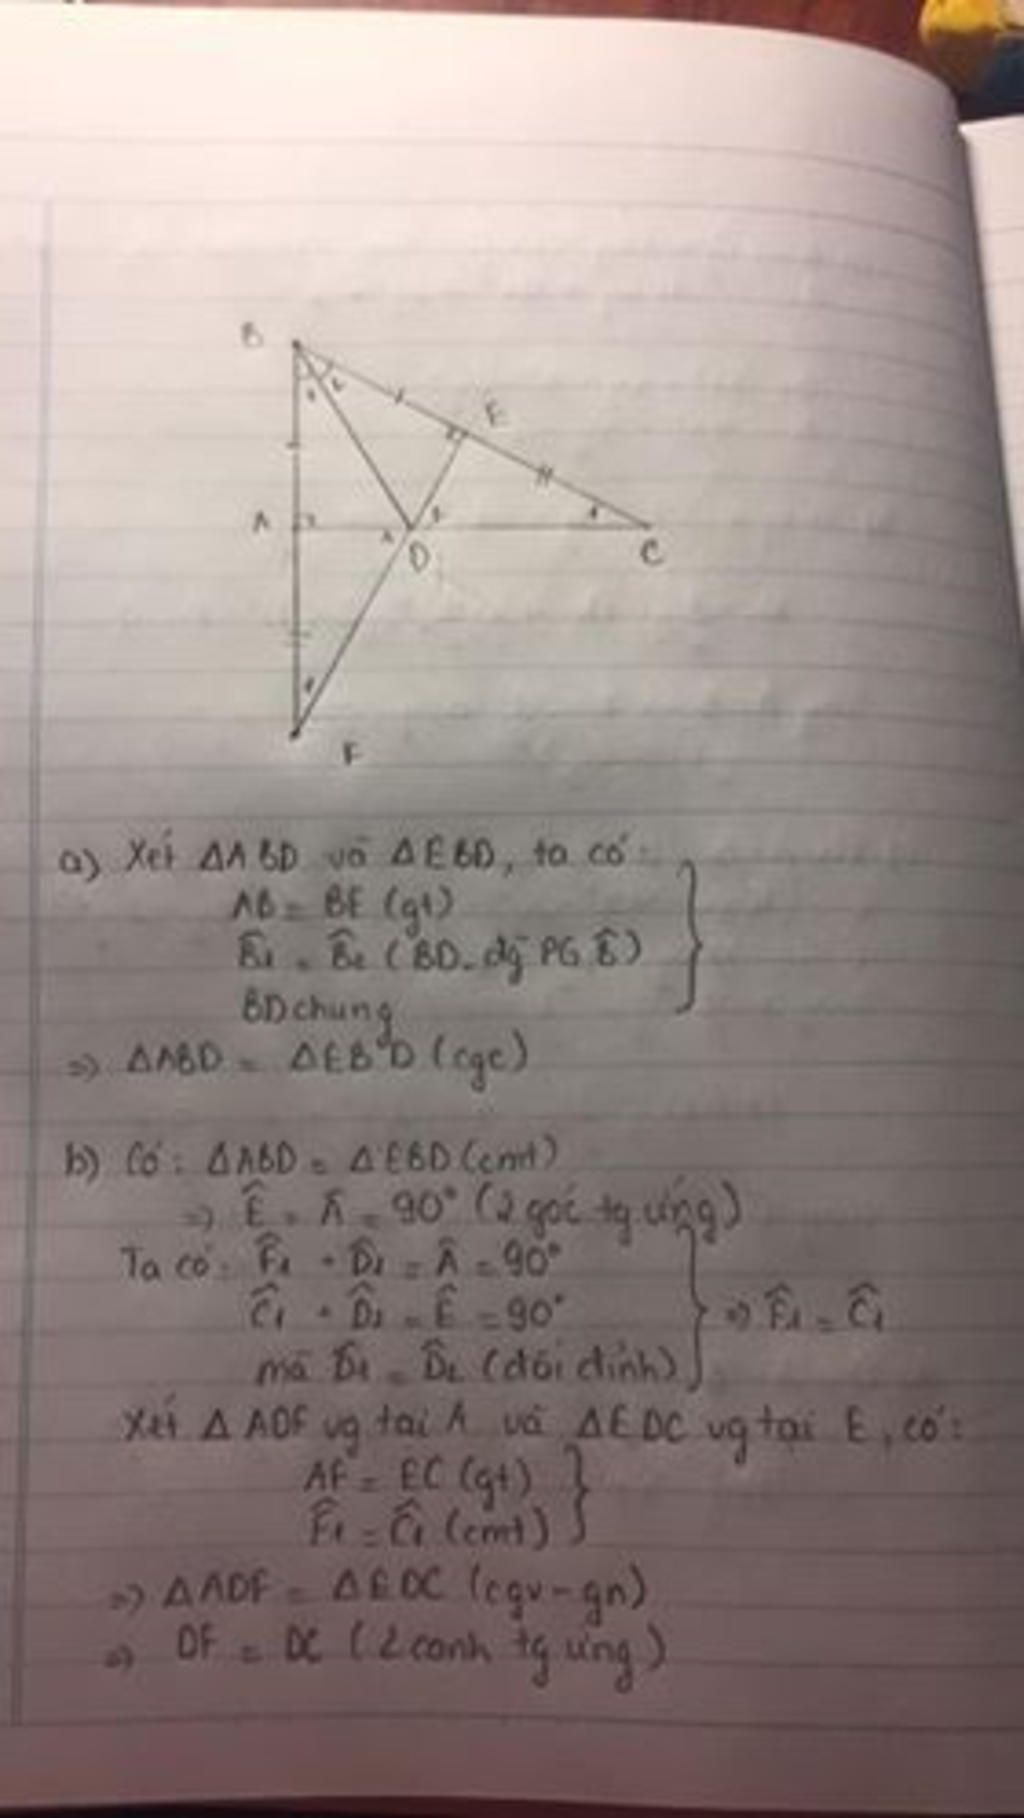 B
1 2
E
A
1 D 2
1
C
1
F
a) Xét ΔABD và ΔEBD, ta có:
AB = BE (gt)
B̂1 = B̂2 (BD - đg PG B̂)
BD chung
=> ΔABD = ΔEBD (cgc)
b) Có: ΔABD = ΔEBD (cmt)
=> Ê = Â = 90° (2 góc tg ứng)
Ta có: F̂1 + D̂1 = Â = 90°
Ĉ1 + D̂2 = Ê = 90° => F̂1 = Ĉ1
mà D̂1 = D̂2 (đối đỉnh)
Xét ΔADF vg tại A và ΔEDC vg tại E, có:
AF = EC (gt)
F̂1 = Ĉ1 (cmt)
=> ΔADF = ΔEDC (cgv - gn)
=> DF = DC (2 cạnh tg ứng)